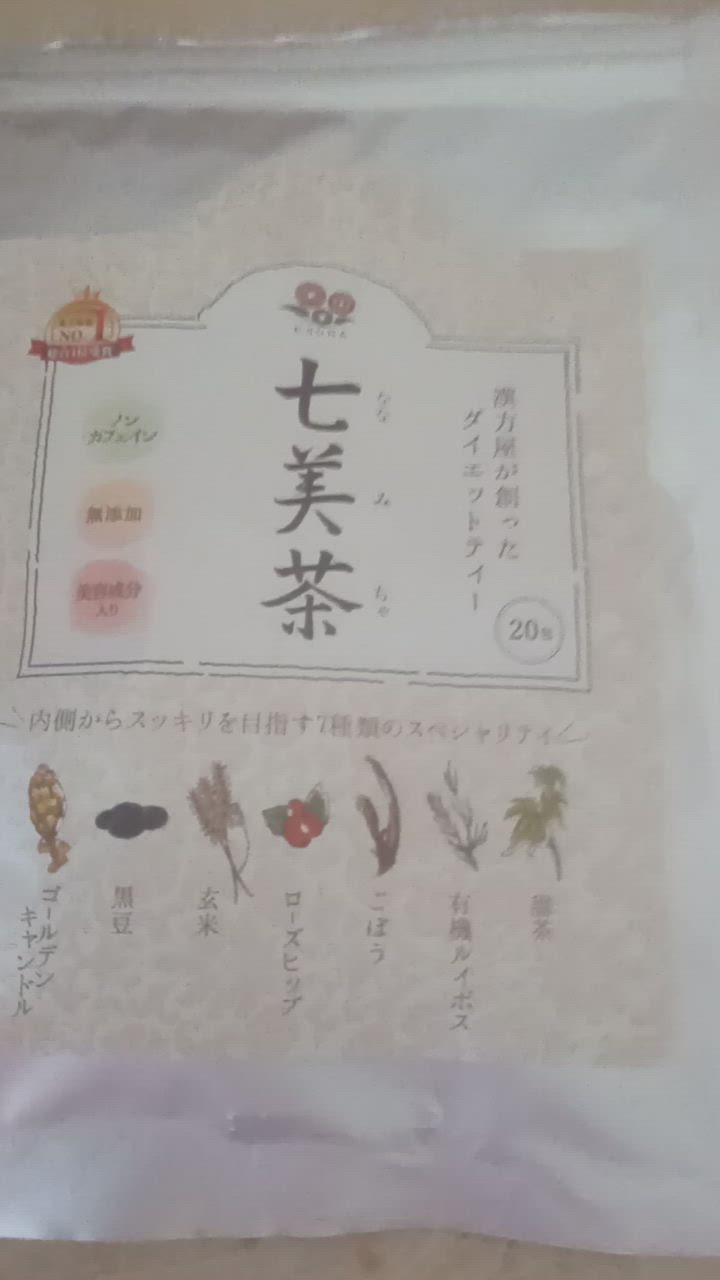 NO.1
漢方屋が創った
ダイエットティー
七美茶
なな
み
ちゃ
ノン
カフェイン
無添加
美容成分
入り
20包
内側からスッキリを目指す7種類のスペシャリティ
ゴールデン
キャンドル
黒豆
玄米
ローズヒップ
ごぼう
有機ルイボス